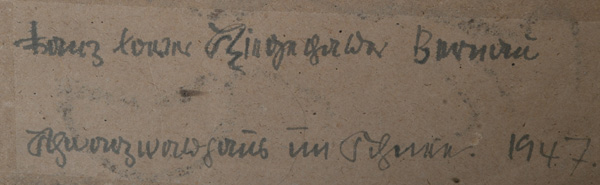 Franz Xaver Bernau
Schwarzwaldhaus im Schnee. 1947.